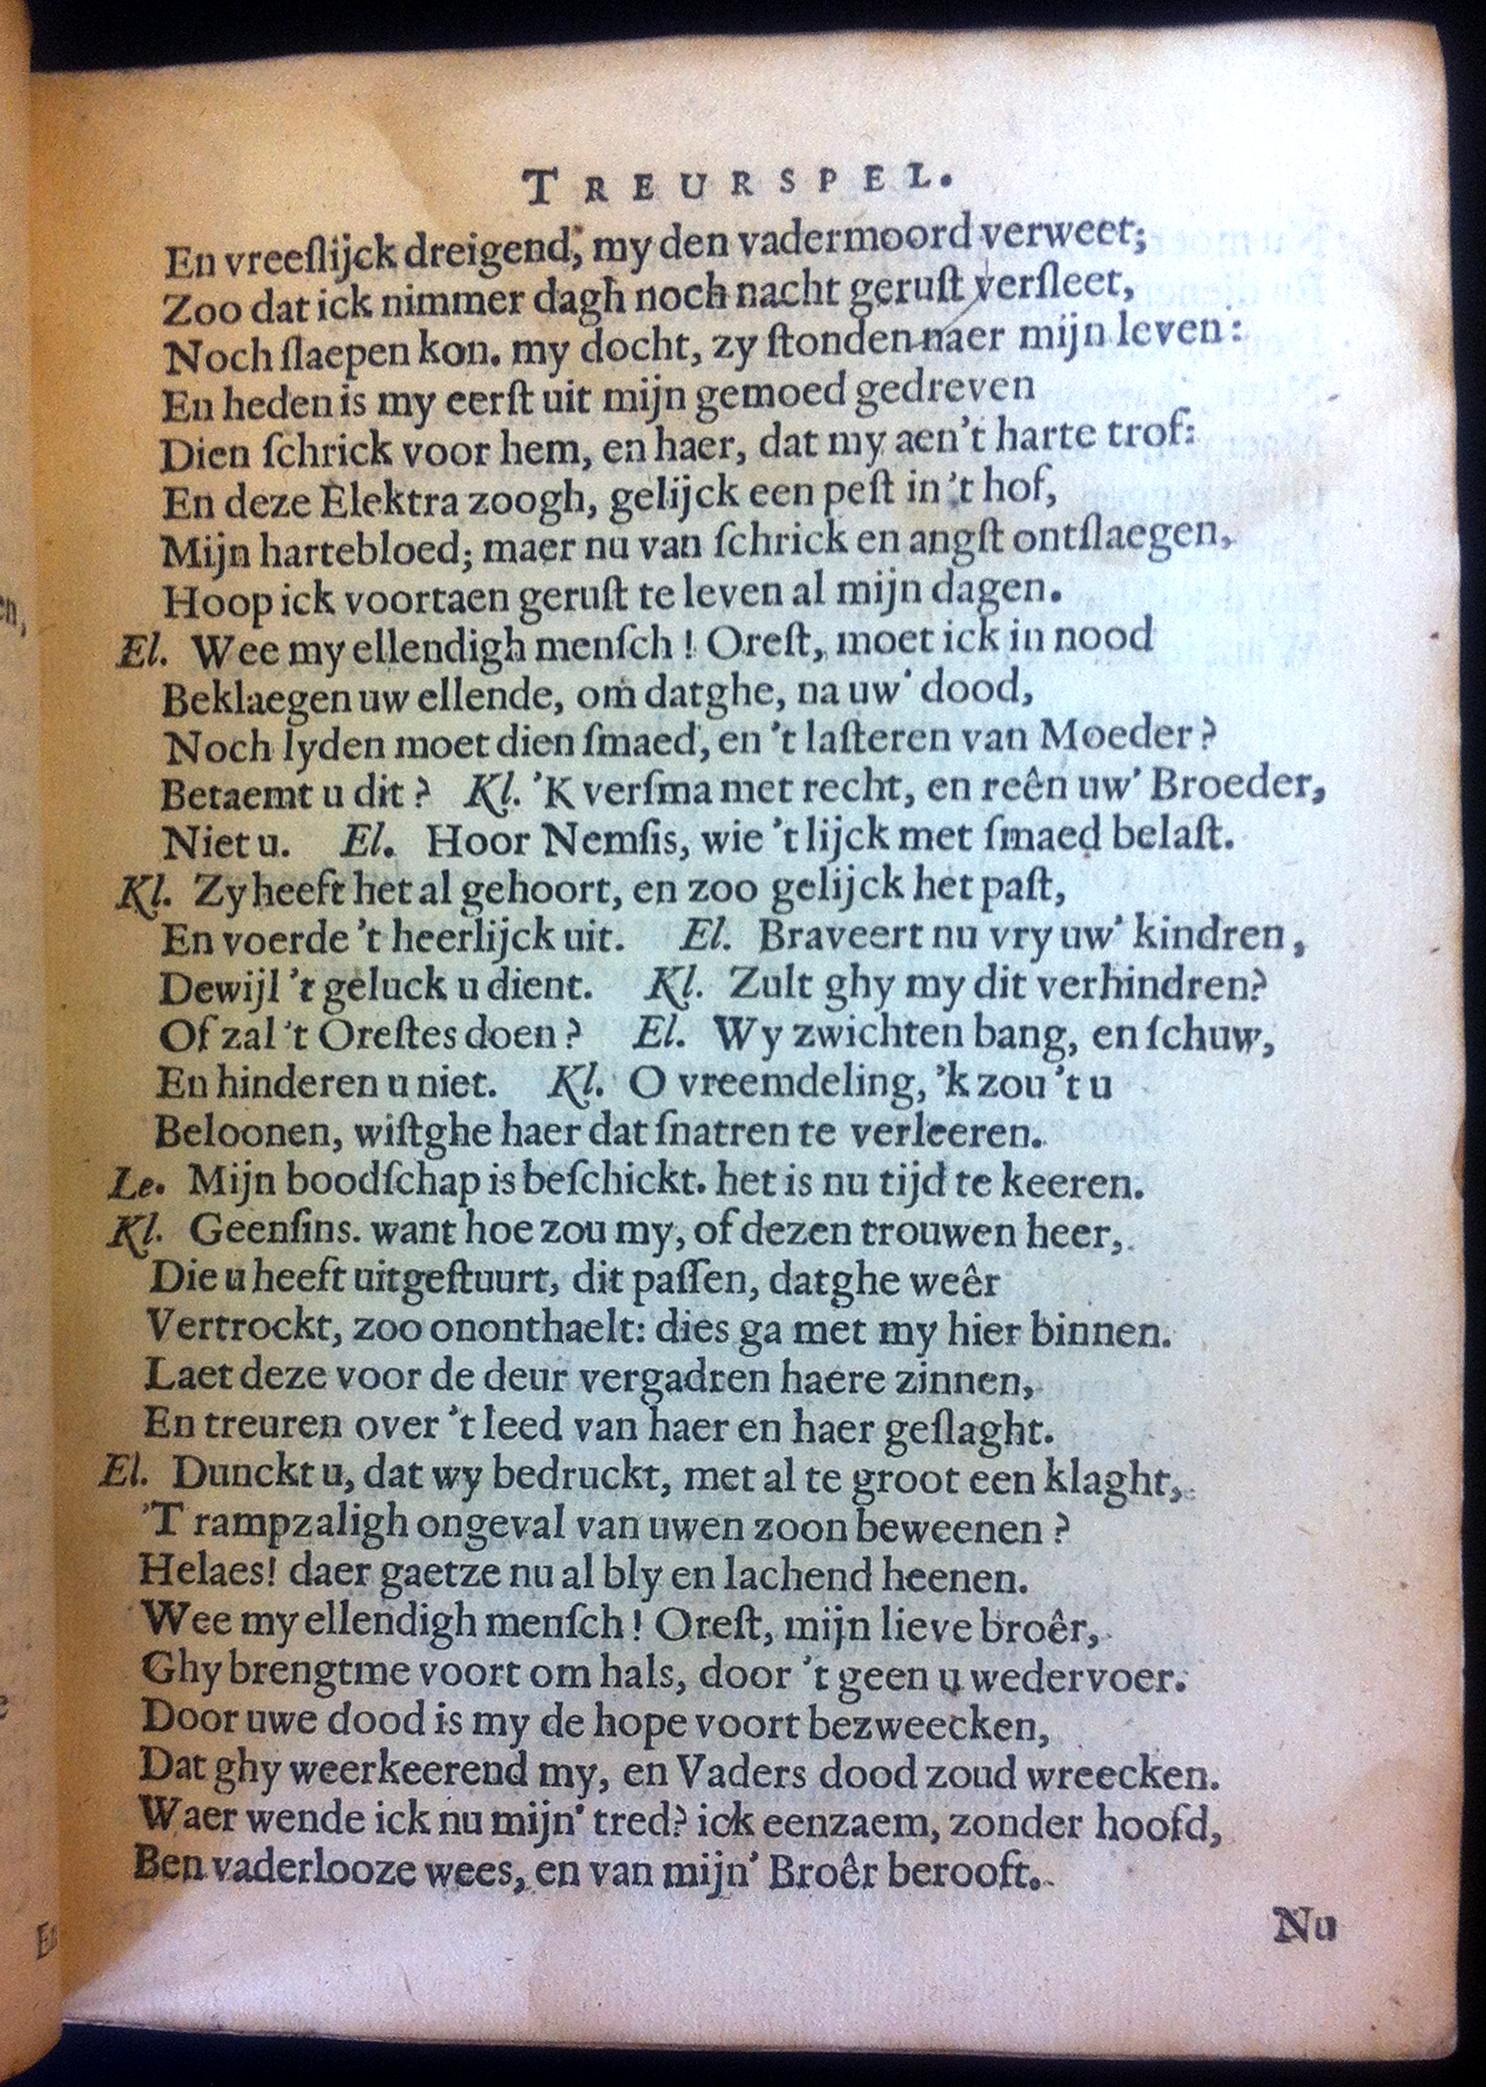 TREURSPEL.
En vreeſlijck dreigend, my den vadermoord verweet;
Zoo dat ick nimmer dagh noch nacht geruſt verſleet,
Noch ſlaepen kon. my docht, zy ſtonden naer mijn leven:
En heden is my eerſt uit mijn gemoed gedreven
Dien ſchrick voor hem, en haer, dat my aen't harte trof:
En deze Elektra zoogh, gelijck een peſt in 't hof,
Mijn hartebloed; maer nu van ſchrick en angſt ontſlaegen,
Hoop ick voortaen geruſt te leven al mijn dagen.
El. Wee my ellendigh menſch! Oreſt, moet ick in nood
Beklaegen uw ellende, om datghe, na uw' dood,
Noch lyden moet dien ſmaed, en 't laſteren van Moeder?
Betaemt u dit? Kl. 'K verſma met recht, en reên uw' Broeder,
Niet u. El. Hoor Nemſis, wie 't lijck met ſmaed belaſt.
Kl. Zy heeft het al gehoort, en zoo gelijck het paſt,
En voerde 't heerlijck uit. El. Braveert nu vry uw' kindren,
Dewijl 't geluck u dient. Kl. Zult ghy my dit verhindren?
Of zal 't Oreſtes doen? El. Wy zwichten bang, en ſchuw,
En hinderen u niet. Kl. O vreemdeling, 'k zou 't u
Beloonen, wiſtghe haer dat ſnatren te verleeren.
Le. Mijn boodſchap is beſchickt. het is nu tijd te keeren.
Kl. Geenſins. want hoe zou my, of dezen trouwen heer,
Die u heeft uitgeſtuurt, dit paſſen, datghe weêr
Vertrockt, zoo ononthaelt: dies ga met my hier binnen.
Laet deze voor de deur vergadren haere zinnen,
En treuren over 't leed van haer en haer geſlaght.
El. Dunckt u, dat wy bedruckt, met al te groot een klaght,
'T rampzaligh ongeval van uwen zoon beweenen?
Helaes! daer gaetze nu al bly en lachend heenen.
Wee my ellendigh menſch! Oreſt, mijn lieve broêr,
Ghy brengtme voort om hals, door 't geen u wedervoer.
Door uwe dood is my de hope voort bezweecken,
Dat ghy weerkeerend my, en Vaders dood zoud wreecken.
Waer wende ick nu mijn' tred? ick eenzaem, zonder hoofd,
Ben vaderlooze wees, en van mijn' Broêr berooft.
Nu